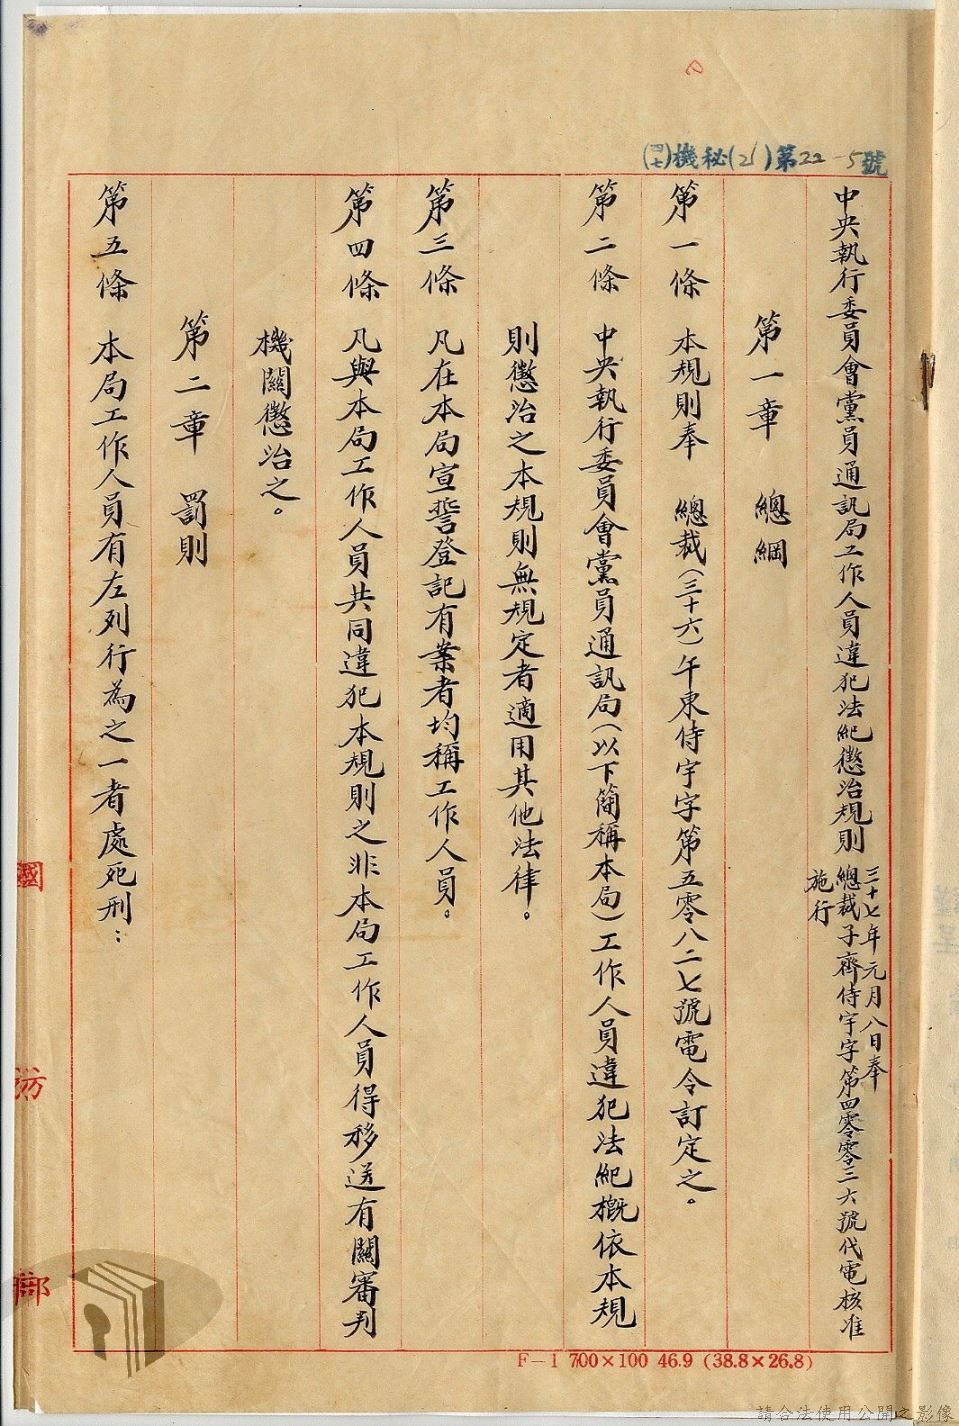 (四七)機秘(21)第22-5號
中央執行委員會黨員通訊局工作人員違犯法紀懲治規則
三十七年元月八日奉
總裁子齊侍宇字第四零零三六號代電核准
施行
第一章 總綱
第一條 本規則奉 總裁(三十六)午東侍宇字第五零八二七號電令訂定之。
第二條 中央執行委員會黨員通訊局(以下簡稱本局)工作人員違犯法紀概依本規
則懲治之本規則無規定者適用其他法律。
第三條 凡在本局宣誓登記有案者均稱工作人員。
第四條 凡與本局工作人員共同違犯本規則之非本局工作人員得移送有關審判
機關懲治之。
第二章 罰則
第五條 本局工作人員有左列行為之一者處死刑：
國防部
F-1 700×100 46.9 (38.8×26.8)
請合法使用公開之影像